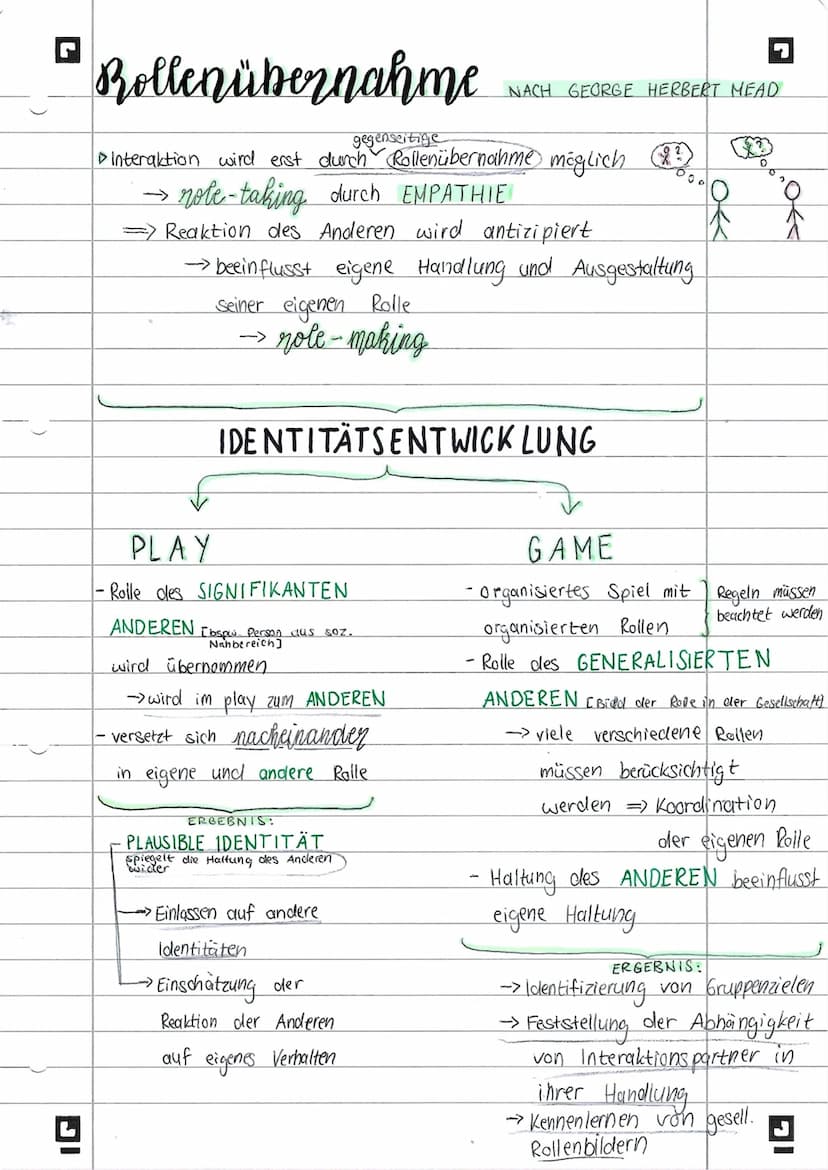 Rollenübernahme NACH GEORGE HERBERT MEAD
gegenseitige
Interaktion wird erst durch Rollenübernahme möglich
→ role-taking durch EMPATHIE
⇒ Reaktion des Anderen wird antizipiert
→ beeinflusst eigene Handlung und Ausgestaltung
seiner eigenen Rolle
→ role-making
??
??
IDENTITÄTSENTWICKLUNG
PLAY
- Rolle des SIGNIFIKANTEN
ANDEREN [bspw. Person aus soz.
Nahbereich]
wird übernommen
→ wird im play zum ANDEREN
- versetzt sich nacheinander
in eigene und andere Rolle
ERGEBNIS:
PLAUSIBLE IDENTITÄT
spiegelt die Haltung des Anderen
wider
→ Einlassen auf andere
Identitäten
→ Einschätzung der
Reaktion der Anderen
auf eigenes Verhalten
GAME
- organisiertes Spiel mit
organisierten Rollen
Regeln müssen
beachtet werden
- Rolle des GENERALISIERTEN
ANDEREN [Bild der Rolle in der Gesellschaft]
→ viele verschiedene Rollen
müssen berücksichtigt
werden ⇒ Koordination
der eigenen Rolle
- Haltung des ANDEREN beeinflusst
eigene Haltung
ERGEBNIS:
→ Identifizierung von Gruppenzielen
→ Feststellung der Abhängigkeit
von Interaktionspartner in
ihrer Handlung
→ Kennenlernen von gesell.
Rollenbildern